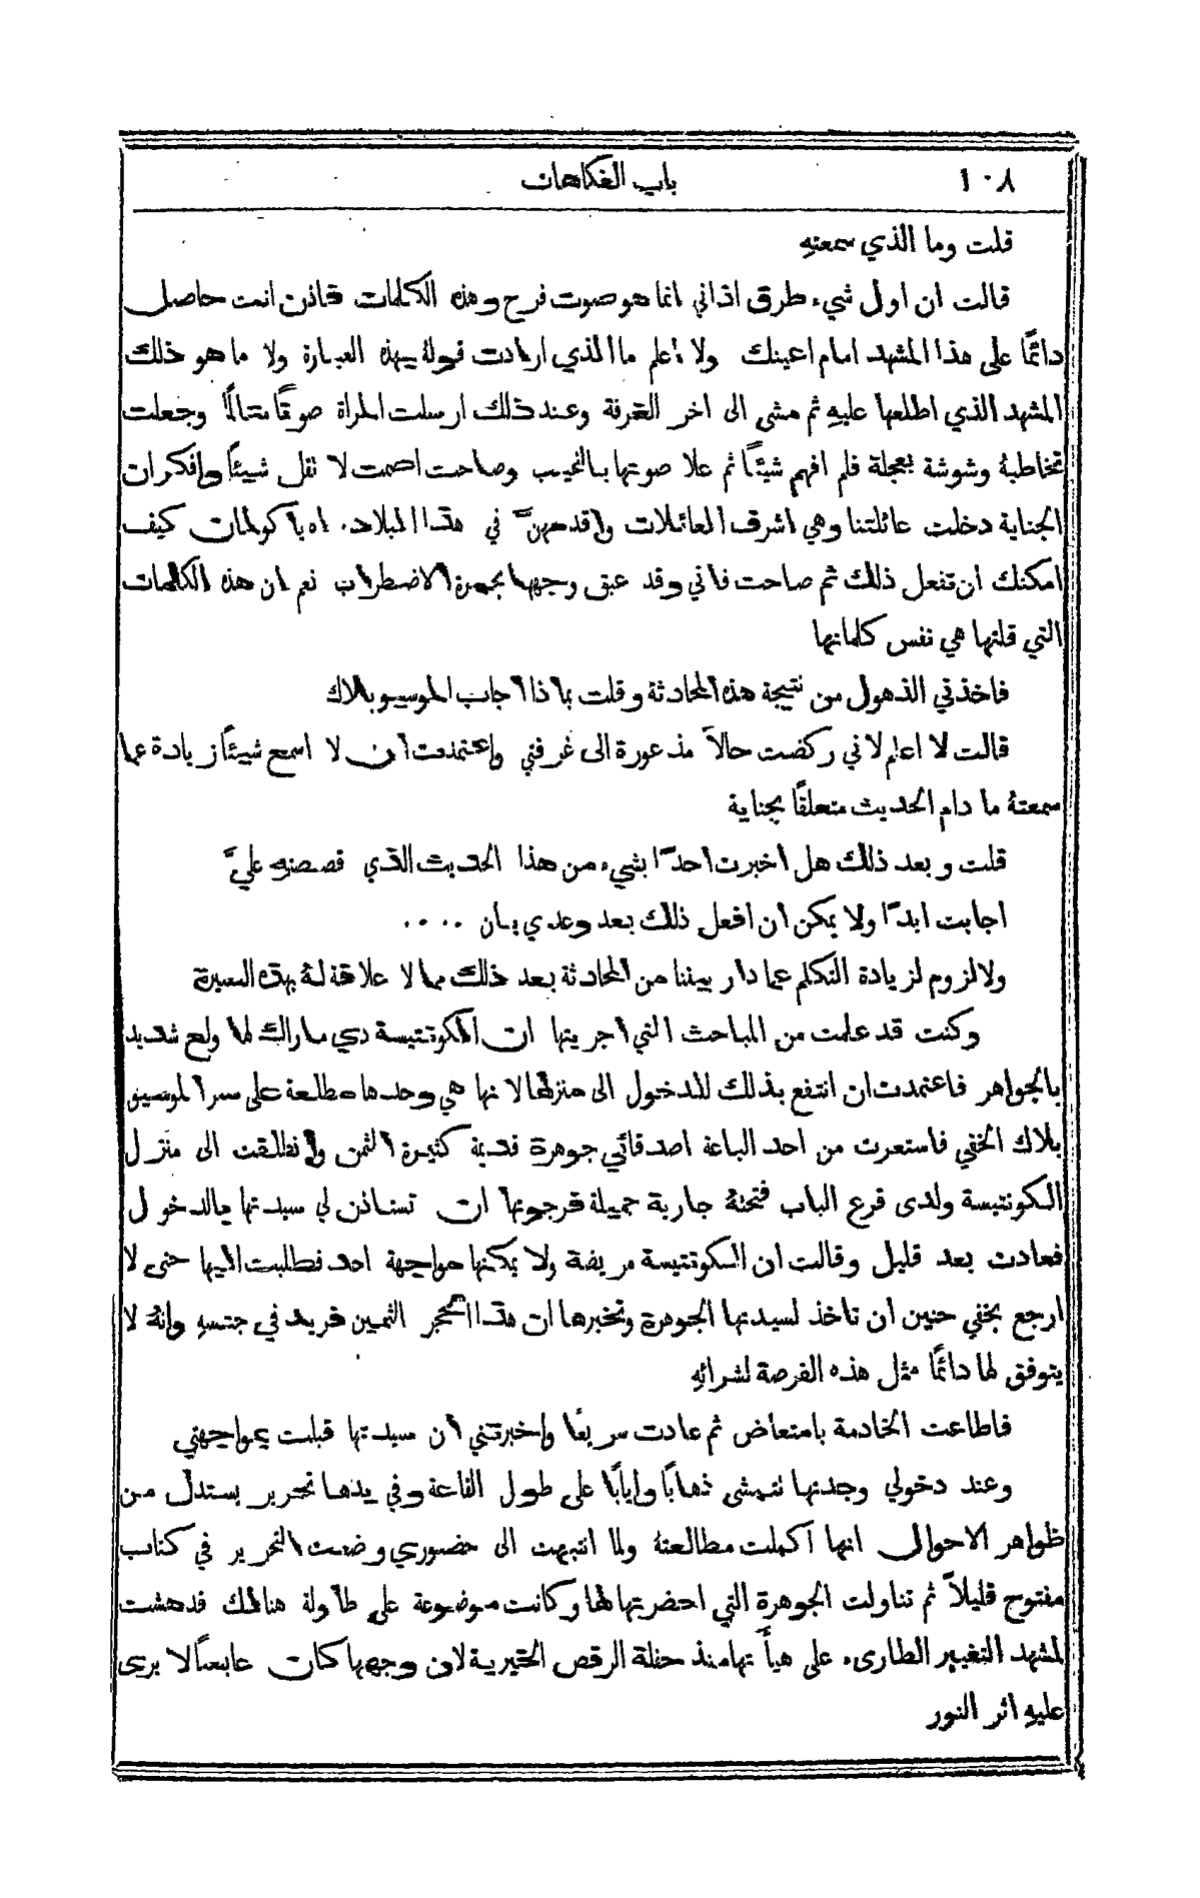 ١٠٨ باب الفكاهات
قلت وما الذي سمعته
قالت ان اول شيء طرق اذاني انما هو صوت فرح وهذه الكلمات فاذن انت حاصل
دائمًا على هذا المشهد امام اعينك ولا اعلم ما الذي ارادت قولهُ بهذه العبارة ولا ما هو ذلك
المشهد الذي اطلعها عليهِ ثم مشى الى اخر الغرفة وعند ذلك ارسلت المراة صوتًا متالمًا وجعلت
تخاطبهُ وشوشة بعجلة فلم افهم شيئًا ثم علا صوتها بالنحيب وصاحت اصمت لا تقل شيئًا وافكر ان
الجناية دخلت عائلتنا وهي اشرف العائلات واقدمهنَّ في هذا البلاد. اه يا كولمان كيف
امكنك ان تفعل ذلك ثم صاحت فاني وقد عبق وجهها بحمرة الاضطراب نعم ان هذه الكلمات
التي قلتها هي نفس كلماتها
فاخذني الذهول من نتيجة هذه المحادثة وقلت بماذا اجاب الموسيو بلاك
قالت لا اعلم لاني ركضت حالاً مذعورة الى غرفتي واعتمدت ان لا اسمع شيئًا زيادة عما
سمعتهُ ما دام الحديث متعلقًا بجناية
قلت وبعد ذلك هل اخبرت احدًا بشيء من هذا الحديث الذي قصصتهِ عليَّ
اجابت ابدًا ولا يمكن ان افعل ذلك بعد وعدي بان ....
ولا لزوم لزيادة التكلم عما دار بيننا من المحادثة بعد ذلك مما لا علاقة لهُ بهذه السيرة
وكنت قد علمت من المباحث التي اجريتها ان الكونتيسة دي ماراك لها ولع شديد
بالجواهر فاعتمدت ان انتفع بذلك للدخول الى منزلها لانها هي وحدها مطلعة على سر الموسيو
بلاك الخفي فاستعرت من احد الباعة اصدقائي جوهرة قديمة كثيرة الثمن وانطلقت الى منزل
الكونتيسة ولدى قرع الباب فتحتهُ جارية جميلة فرجوتها ان تستاذن لي سيدتها بالدخول
فعادت بعد قليل وقالت ان الكونتيسة مريضة ولا يمكنها مواجهة احد فطلبت اليها حتى لا
ارجع بخفي حنين ان تاخذ لسيدتها الجوهرة وتخبرها ان هذا الحجر الثمين فريد في جنسهِ وانهُ لا
يتوفق لها دائمًا مثل هذه الفرصة لشرائهِ
فاطاعت الخادمة بامتعاض ثم عادت سريعًا واخبرتني ان سيدتها قبلت بمواجهتي
وعند دخولي وجدتها تتمشى ذهابًا وايابًا على طول القاعة وفي يدها تحرير يستدل من
ظواهر الاحوال انها اكملت مطالعتهُ ولما انتبهت الى حضوري وضعت التحرير في كتاب
مفتوح قليلاً ثم تناولت الجوهرة التي احضرتها لها وكانت موضوعة على طاولة هنالك فدهشت
لمشهد التغيير الطارىء على هيأتها منذ حفلة الرقص الخيرية لان وجهها كان عابسًا لا يرى
عليهِ اثر النور